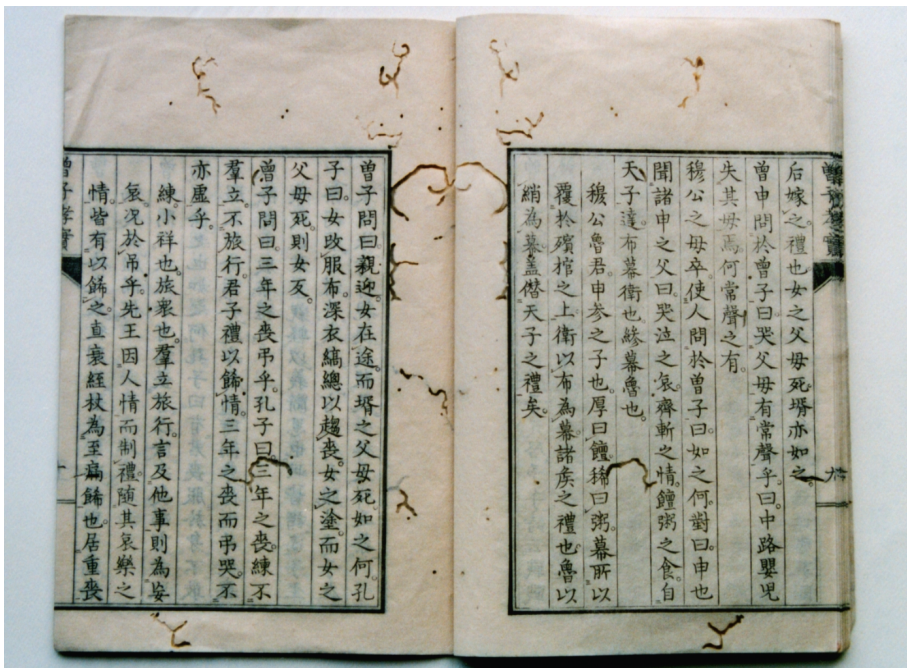 后嫁之。禮也女之父母死壻亦如之。
曾申問於曾子曰哭父母有常聲乎。曰。中路嬰児
失其母焉何常聲之有。
穆公之母卒。使人問於曽子曰。如之何。對曰。申也
聞諸申之父曰。哭泣之哀。齊斬之情。饘粥之食。自
天子達。布幕衛也。縿幕魯也。
穆公魯君。申参之子也。厚曰饘稀曰粥。幕所以
覆於殯棺之上。衛以布為幕諸矦之禮也。魯以
綃為幕盖僣天子之禮矣。
曽子問曰。親迎。女在途。而壻之父母死。如之何。孔
子曰。女改服。布深衣縞總以趨喪。女之塗。而女之
父母死。則女反。
曽子問曰。三年之喪弔乎。孔子曰。三年之喪。練不
羣立。不旅行。君子禮以餙情。三年之喪而弔哭。不
亦虛乎。
練小祥也。旅衆也。羣立旅行。言及他事則為忘
哀。况於吊乎。先王因人情而制禮。隨其哀樂之
情皆有以餙之。直衰絰杖為至痛餙也。居重喪